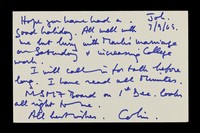 Hope you have had a Joh.
good holiday. All well with 7/9/65.
me but busy with Marlis' marriage
on Saturday & increasing College
work.
I will call in for talk before
long. I have read all Minutes.
Board on 1st Dec. looks
all right to me.
All best wishes. Colin.